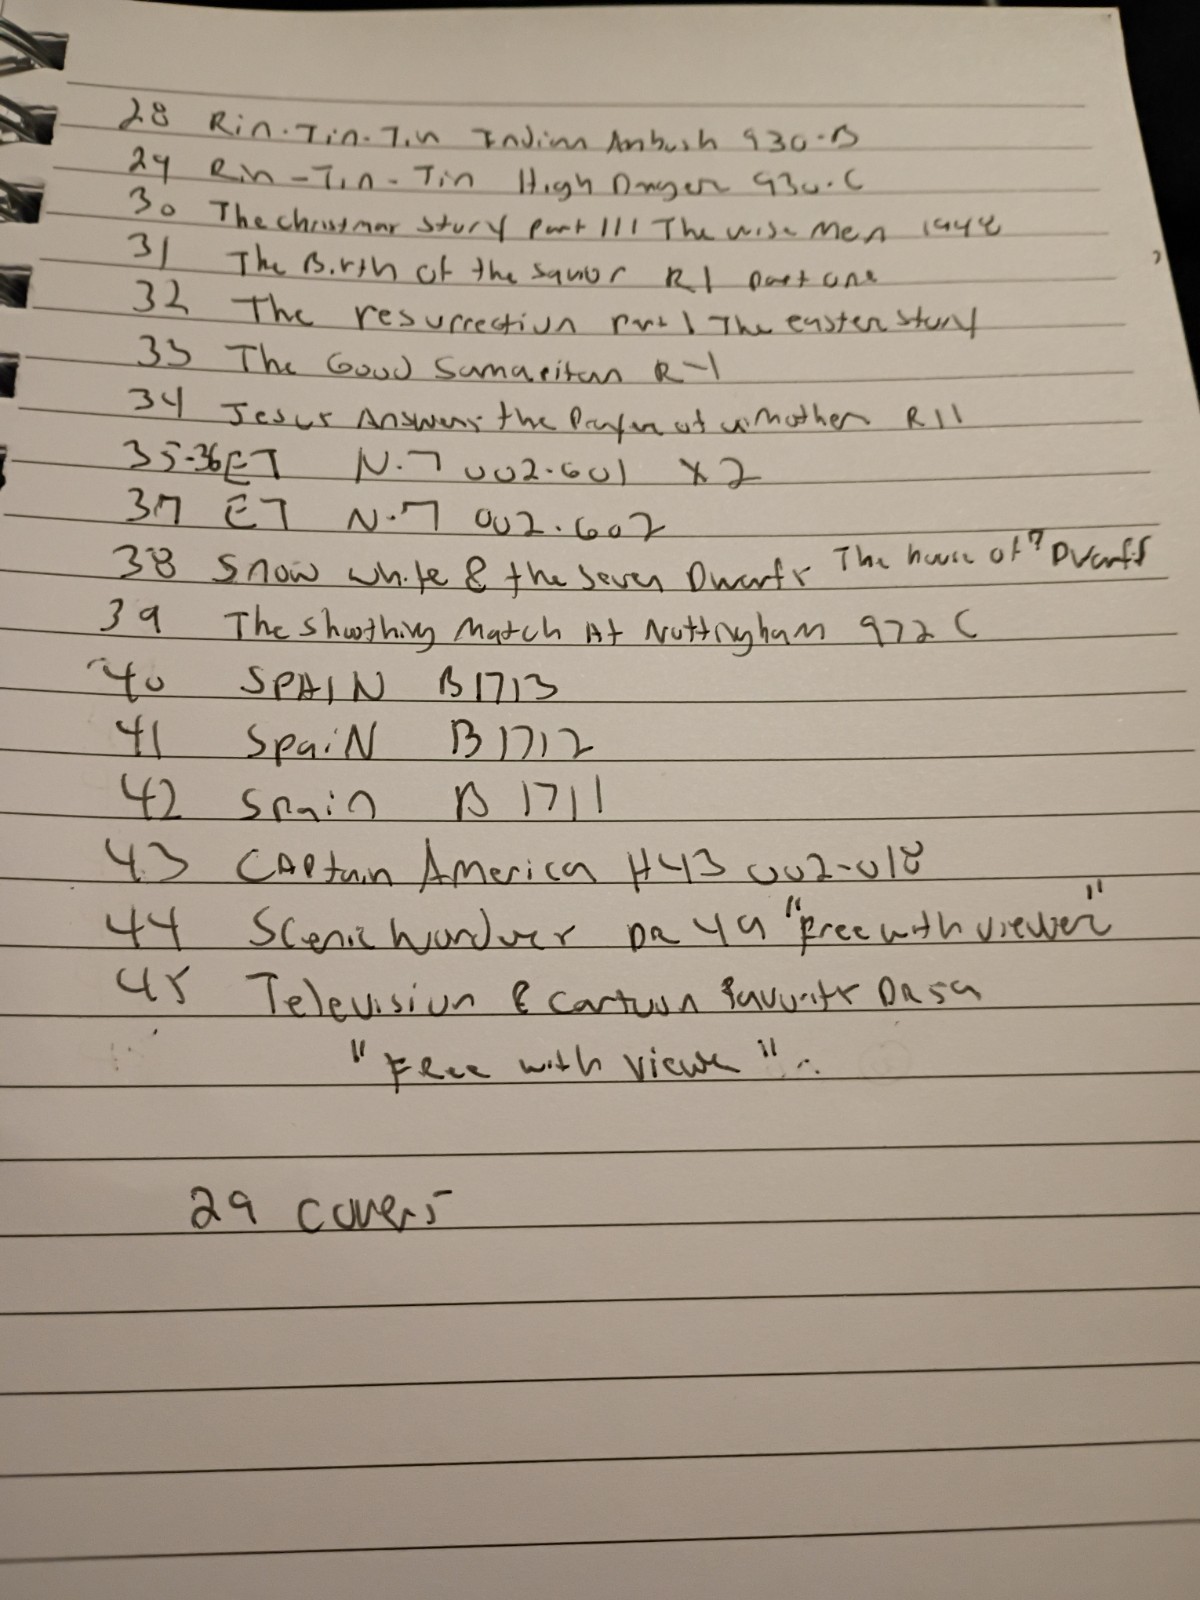 28 Rin-Tin-Tin Indian Ambush 930-B
29 Rin-Tin-Tin High Danger 930-C
30 The christmas story Part III The wise Men 1948
31 The Birth of the savior R1 Part one
32 The resurrection Part 1 The easter story
33 The Good Samaritan R-1
34 Jesus Answers the Prayer of a Mother R11
35-36 ET N-7 002-601 X2
37 ET N-7 002-602
38 Snow white & the seven Dwarfs The house of 7 Dwarfs
39 The Shoothing Match At Nottingham 972 C
40 SPAIN B1713
41 SpaiN B1712
42 Spain B 1711
43 CAPtain America H43 002-018
44 Scenic Wonder DR 49 "Free with viewer"
45 Television & Cartoon favorits DR59
"Free with viewe"
29 covers